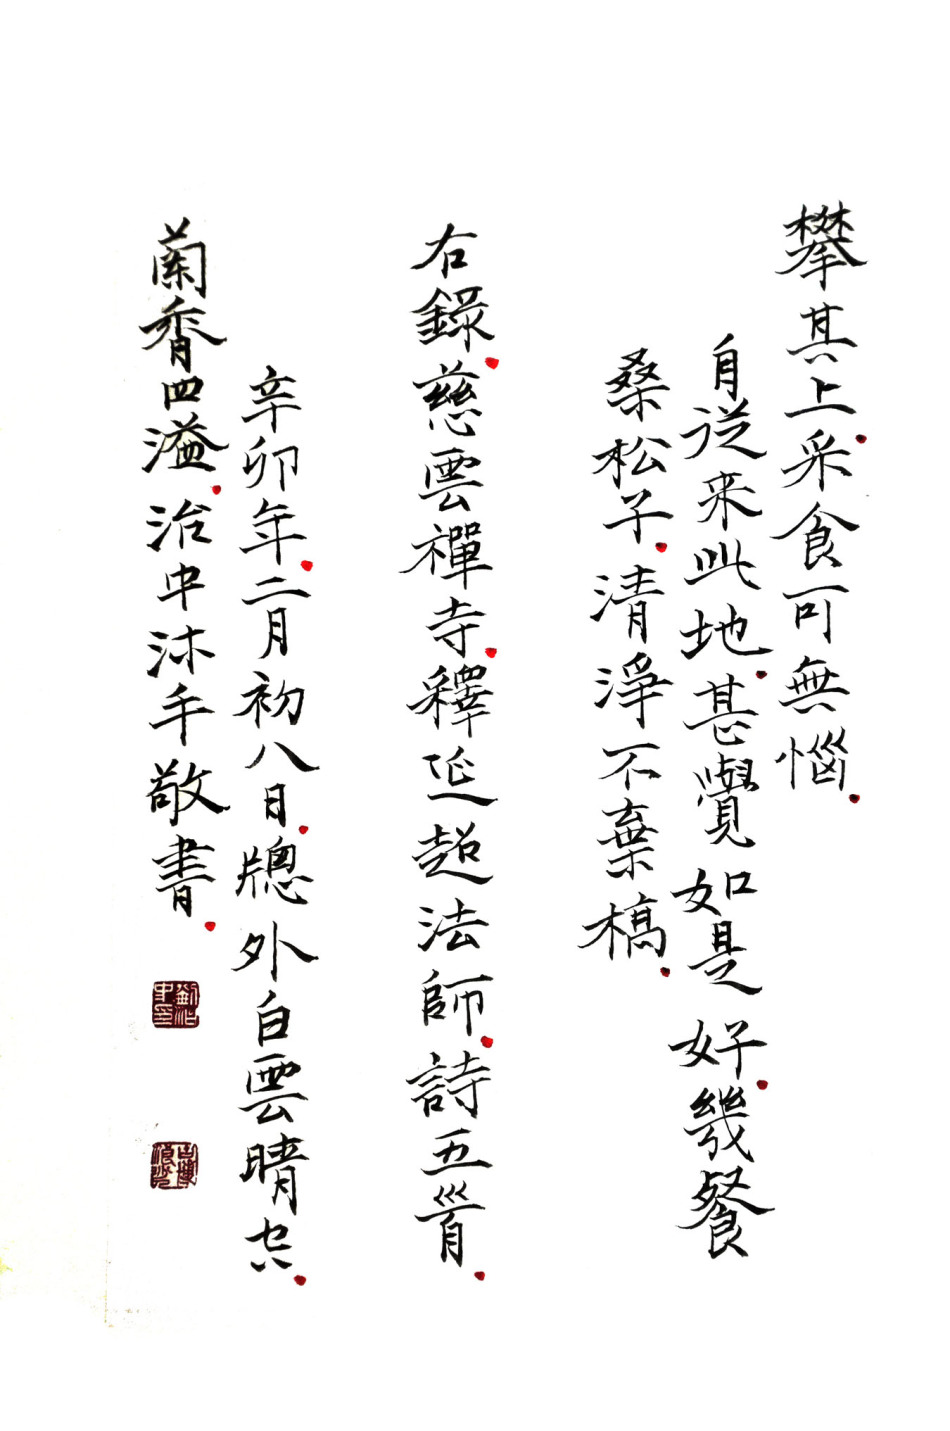 攀其上采食可無惱
自從来此地甚覺如是好幾餐
桑松子清淨不棄槁
右錄慈雲禪寺釋延超法師詩五首
辛卯年二月初八日牕外白雲晴空
蘭香四溢治中沐手敬書
劉治中印